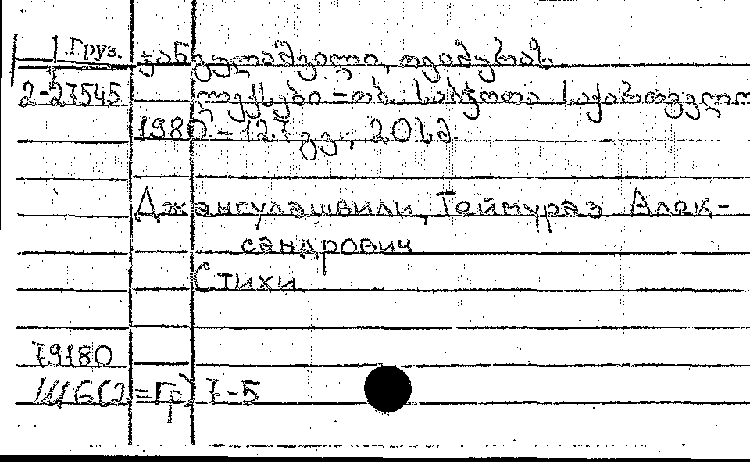 Груз. ჯანგულაშვილი, თეიმურაზ
2-27545 ლექსები = თბ. საბჭოთა საქართველო
1980 - 127 გვ., 20სმ.
Джангулашвили, Теймураз Алек-
сандрович
Стихи
79180
Ш6(2=Гр) 7-5